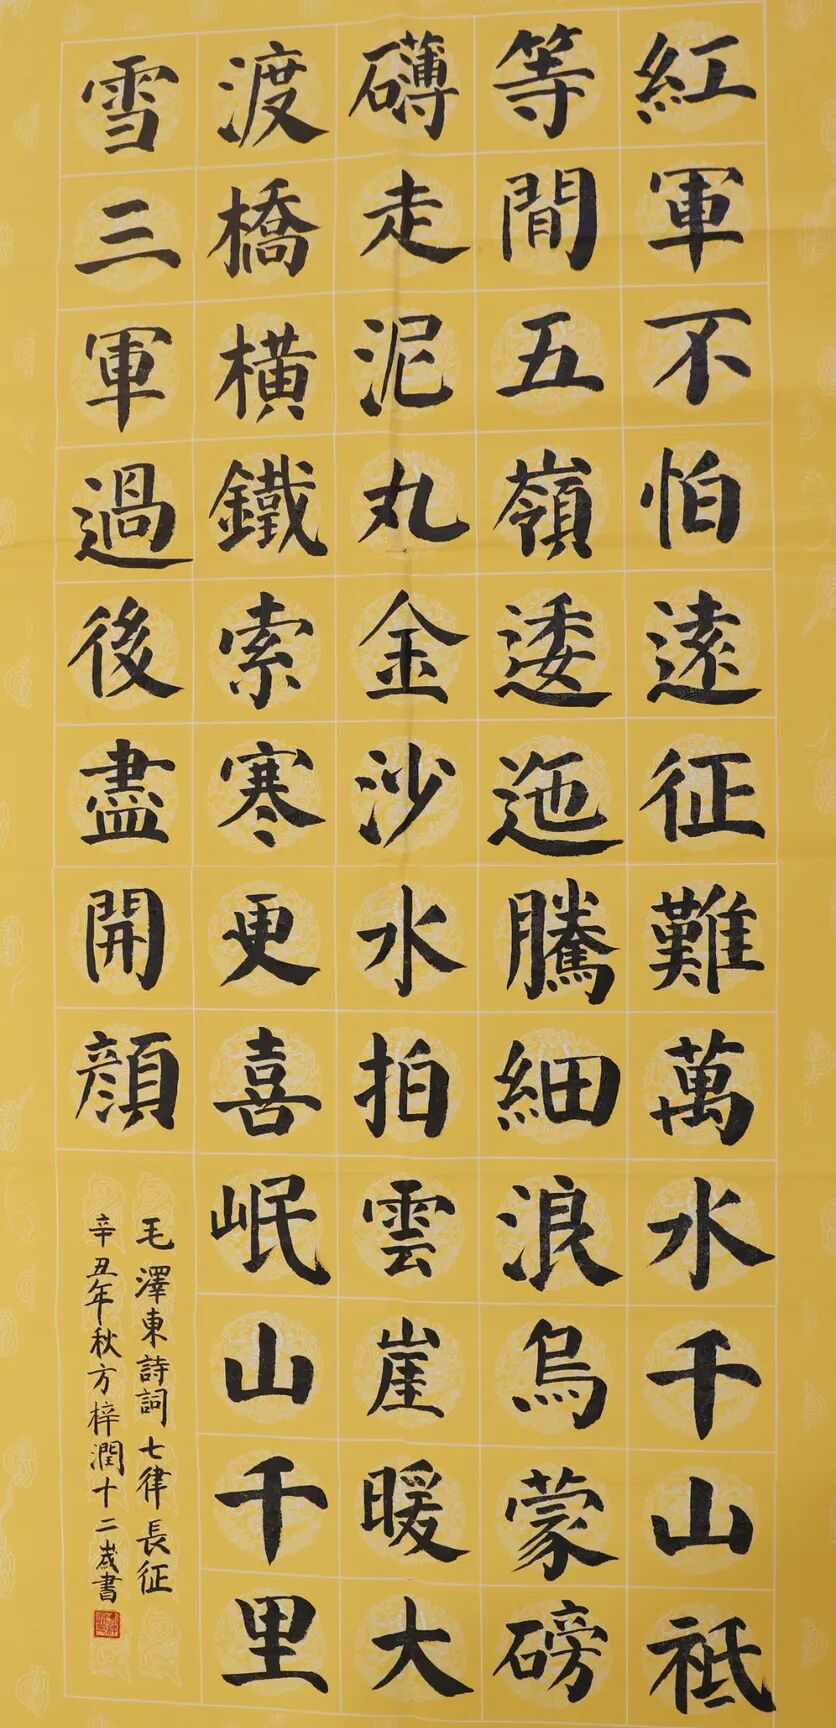 紅軍不怕遠征難萬水千山祗
等閒五嶺逶迤騰細浪烏蒙磅
礴走泥丸金沙水拍雲崖暖大
渡橋橫鐵索寒更喜岷山千里
雪三軍過後盡開顔
毛澤東詩詞七律長征
辛丑年秋方梓潤十二歲書